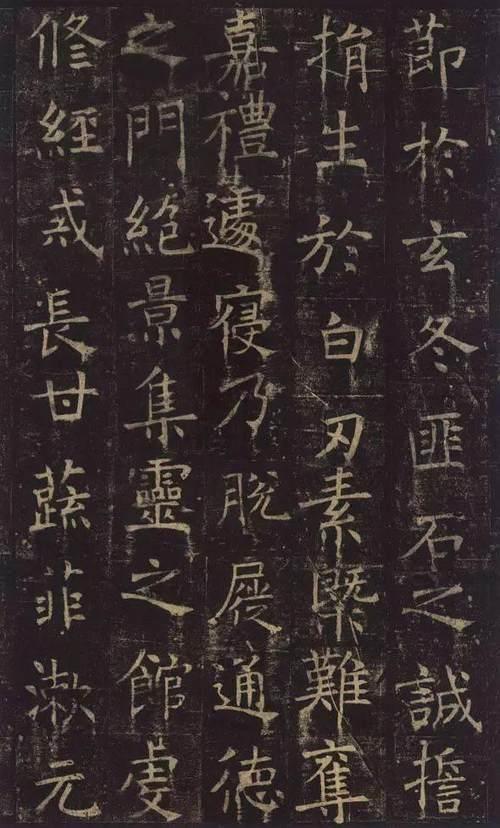 節於玄冬匪石之誠誓
捐生於白刃素槩難奪
嘉禮遽寢乃脫屣通德
之門絕景集靈之館虔
修經戒長甘蔬菲漱元